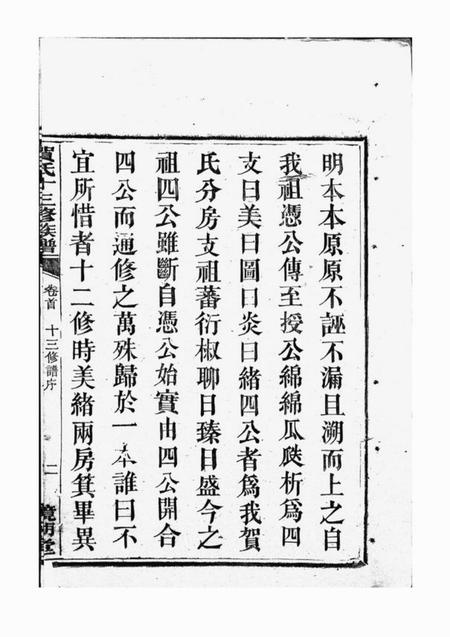 明本本原原不誣不漏且溯而上之自
我祖憑公傳至授公綿綿瓜瓞析爲四
支曰美曰圖曰炎曰緒四公者爲我賀
氏分房支祖蕃衍椒聊日臻日盛今之
祖四公雖斷自憑公始實由四公開合
四公而通修之萬殊歸於一本誰曰不
宜所惜者十二修時美緒兩房箕畢異
賀氏十三修族譜
卷首
十三修譜序
二
鏡湖堂